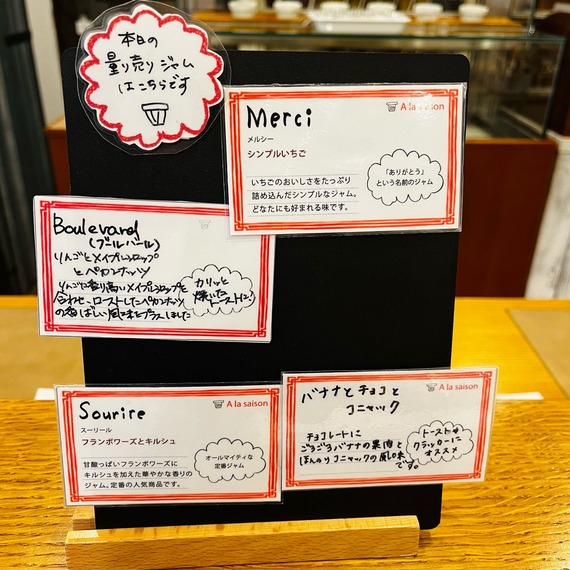 本日の
量り売りジャム
はこちらです
A la saison
Merci
メルシー
シンプルいちご
いちごのおいしさをたっぷり
詰め込んだシンプルなジャム。
どなたにも好まれる味です。
「ありがとう」
という名前のジャム
Boulevard
(ブルバール)
りんごとメイプルシロップ
とペカンナッツ
りんごに香り高いメイプルシロップを
合わせ、ローストしたペカンナッツ
の香ばしい風味をプラスしました
カリッと
焼いた
トーストに!
A la saison
Sourire
スーリール
フランボワーズとキルシュ
甘酸っぱいフランボワーズに
キルシュを加えた華やかな香りの
ジャム。定番の人気商品です。
オールマイティな
定番ジャム
A la saison
バナナとチョコと
コニャック
チョコレートに
ごろごろバナナの果肉と
ほんのりコニャックの風味
です。
トーストや
クラッカーに
オススメ